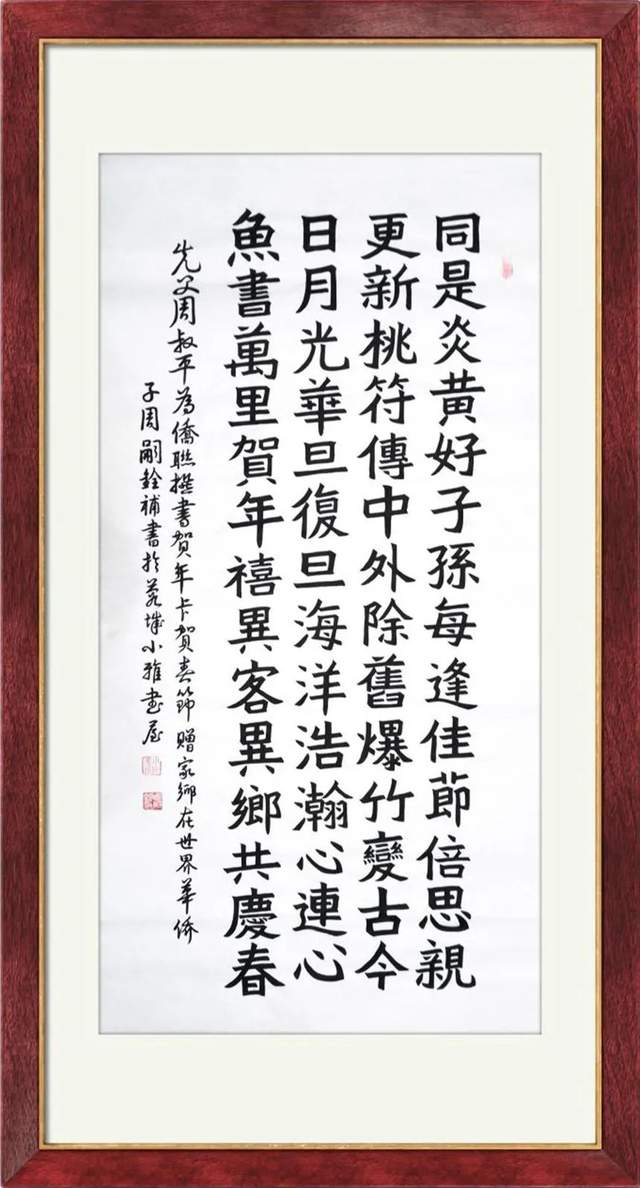 同是炎黃好子孫每逢佳節倍思親
更新桃符傳中外除舊爆竹變古今
日月光華旦復旦海洋浩瀚心連心
魚書萬里賀年禧異客異鄉共慶春
先父周叔平為僑聯撰書賀年卡賀春節贈家鄉在世界華僑
子周嗣銓補書於蓉城小雅畫屋